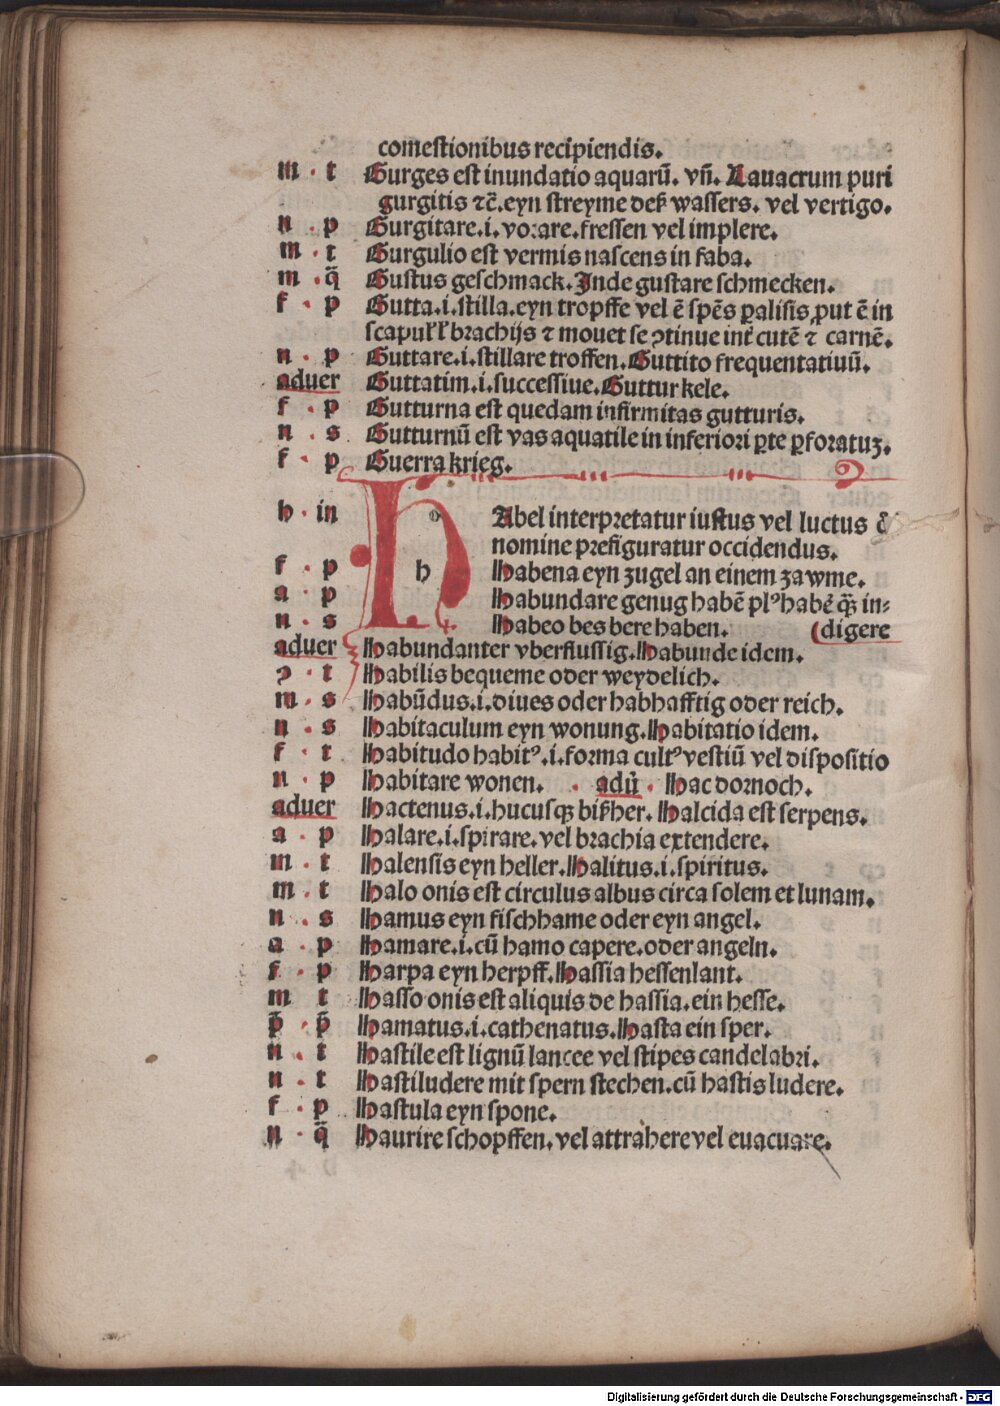 comestionibus recipiendis.
m · t Gurges est inundatio aquarū. vñ. Lauacrum puri
gurgitis ⁊c̄. eyn streyme deß wassers. vel vertigo.
n · p Gurgitare .i. vorare. fressen vel implere.
m · t Gurgulio est vermis nascens in faba.
m · q̄ Gustus geschmack. Inde gustare schmecken.
f · p Gutta .i. stilla. eyn tropffe vel ē spēs ꝑalisis ꝓut ē in
scapuƚƚ brachijs ⁊ mouet se ꝯtinue int̄ cutē ⁊ carnē.
n · p Guttare .i. stillare troffen. Guttito frequentatiuū.
aduer Guttatim .i. successiue. Guttur kele.
f · p Gutturna est quedam infirmitas gutturis.
n · s Gutturnū est vas aquatile in inferiori ꝑte ꝑforatuꝫ.
f · p Guerra krieg.
h · in HAbel interpretatur iustus vel luctus
nomine prefiguratur occidendus.
f · p Habena eyn zugel an einem zawme.
a · p Habundare genug habē plꝰ habē q̄ꝫ in⸗
n · s Habeo bes bere haben. (digere
aduer Habundanter vberflussig. Habunde idem.
ꝯ · t Habilis bequeme oder weydelich.
m · s Habūdus .i. diues oder habhafftig oder reich.
n · s Habitaculum eyn wonung. Habitatio idem.
f · t Habitudo habitꝰ .i. forma cultꝰ vestiū vel dispositio
n · p Habitare wonen. · adū · Hac dornoch.
aduer Hactenus .i. hucusqꝫ bißher. Halcida est serpens.
a · p Halare .i. spirare. vel brachia extendere.
m · t Halensis eyn heller. Halitus .i. spiritus.
m · t Halo onis est circulus albus circa solem et lunam.
n · s Hamus eyn fischhame oder eyn angel.
a · p Hamare .i. cū hamo capere. oder angeln.
f · p Harpa eyn herpff. Hassia hessenlant.
m t Hasso onis est aliquis de hassia. ein hesse.
p̄ · p̄ Hamatus .i. cathenatus. Hasta ein sper.
n · t Hastile est lignū lancee vel stipes candelabri.
n · t Hastiludere mit spern stechen. cū hastis ludere.
f · p Hastula eyn spone.
n · q̄ Haurire schopffen. vel attrahere vel euacuare.
Digitalisierung gefördert durch die Deutsche Forschungsgemeinschaft - DFG